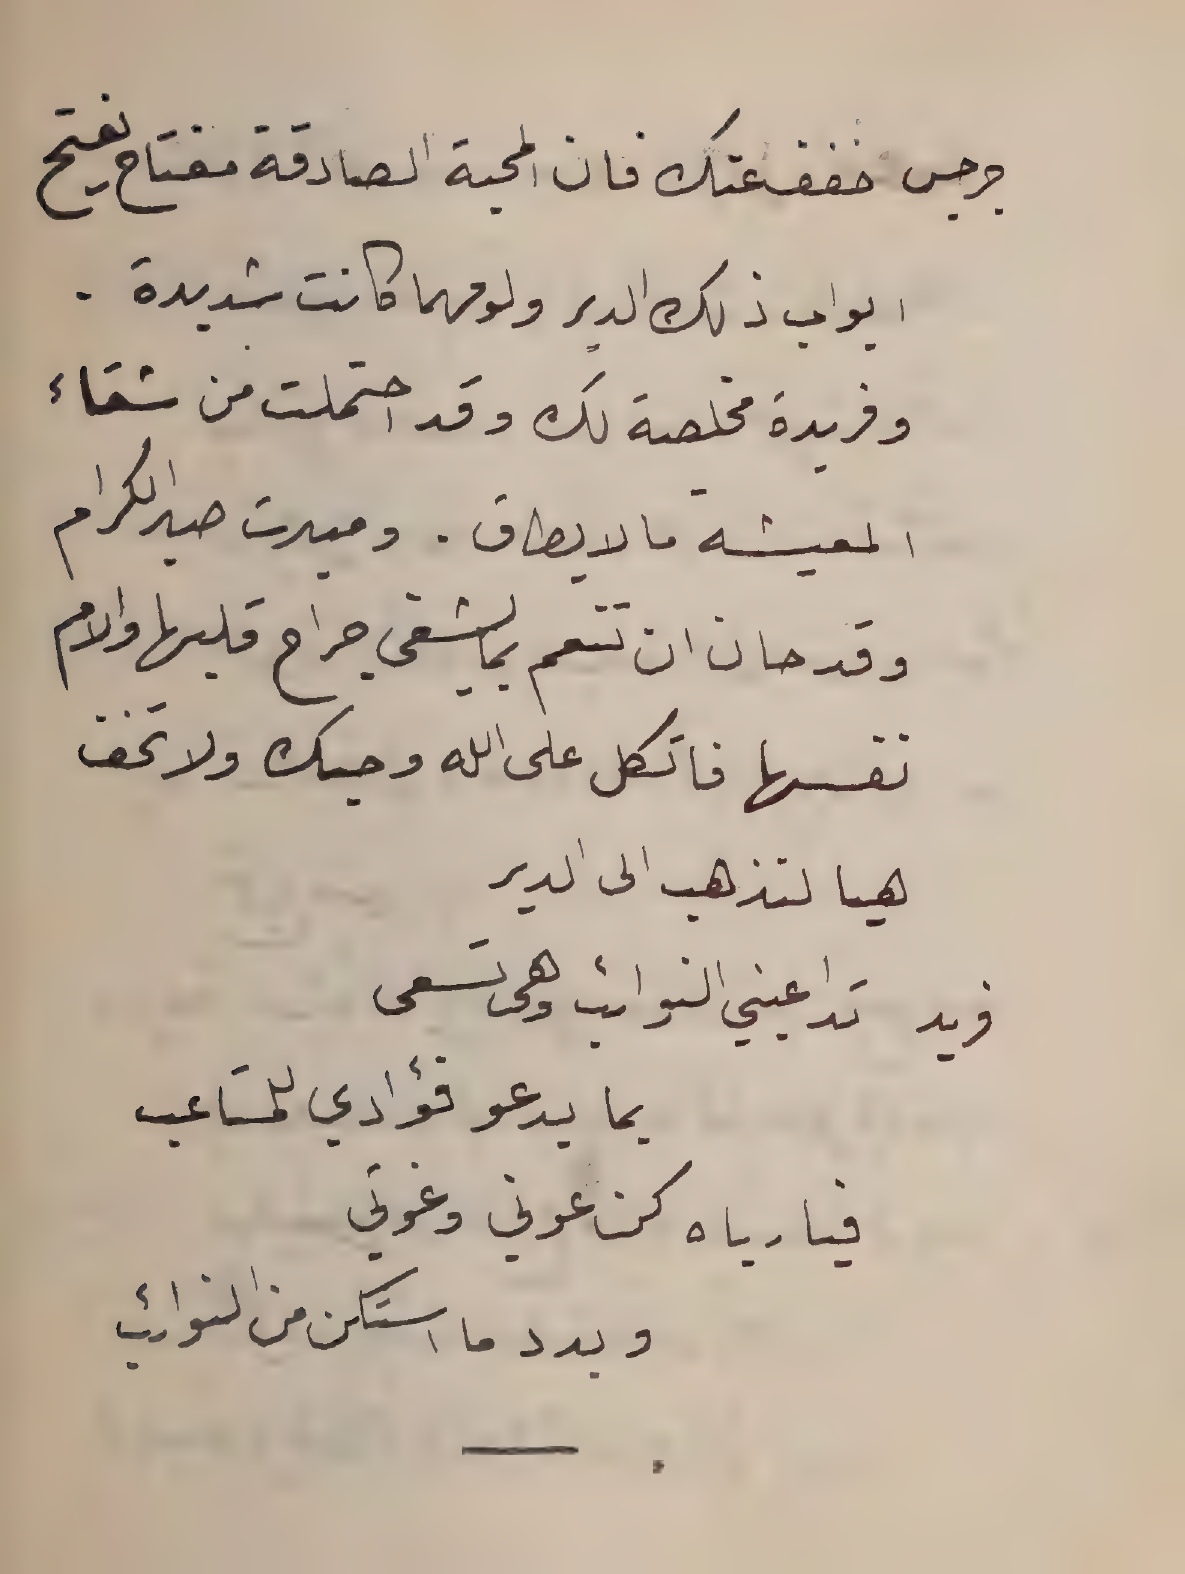 جرجس خفف عنك فان المحبة الصادقة مفتاح يفتح
ابواب ذلك الدير ولومهما كانت شديدة .
وفريدة مخلصة لك وقد احتملت من شقاء
المعيشة مالايطاق . وصبرت صبر الكرام
وقد حان ان تنعم بما يشفي جراح قلبها والام
نفسها فاتكل على الله وحبك ولا تخف
هيا لتذهب الى الدير
فريد تداعبني النوائب وهي تسعى
بما يدعو فؤادي للمتاعب
فيا رباه كن عوني وغوثي
وبدد ما استكن من النوائب